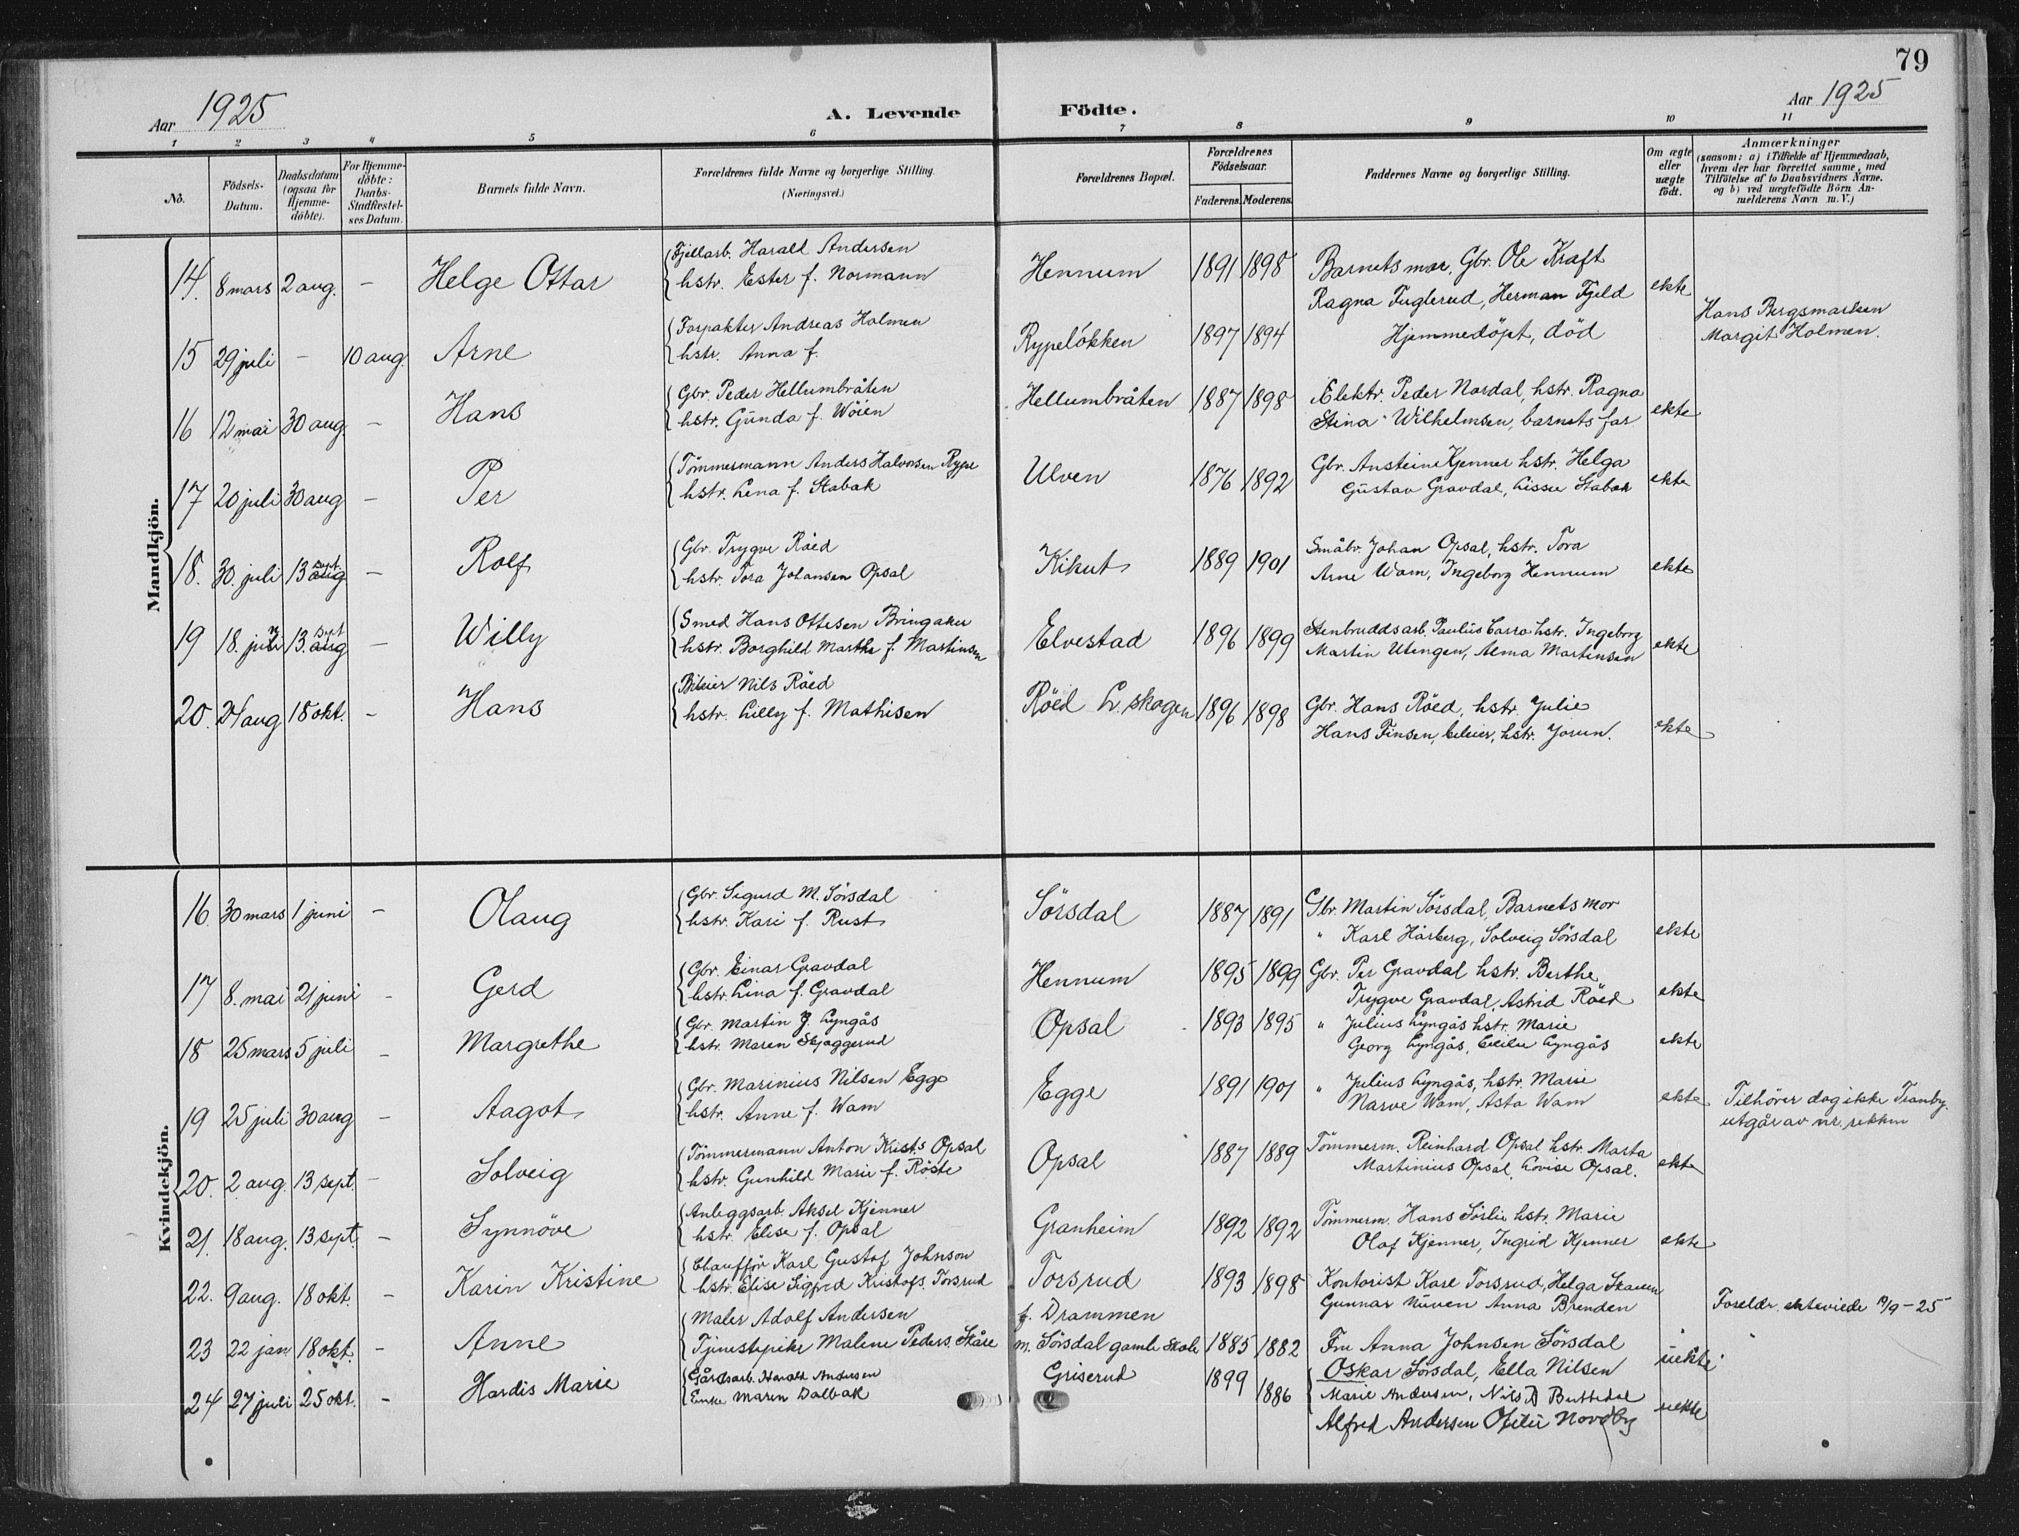 79
Aar 1925
A. Levende Födte.
Aar 1925
1 2 3 4 5 6 7 8 9 10 11
No.
Födsels-Datum.
Daabsdatum (ogsaa for Hjemme-döbte).
For Hjemme-döbte: Daabs-Stadfestel-ses Datum.
Barnets fulde Navn.
Forældrenes fulde Navne og borgerlige Stilling. (Næringsvei.)
Forældrenes Bopæl.
Forældrenes Födselsaar.
Faderens. Moderens.
Faddernes Navne og borgerlige Stilling.
Om ægte eller uægte födt.
Anmærkninger
(saasom: a) i Tilfælde af Hjemmedaab, hvem der har forrettet samme, med Tilföielse af to Daabsvidners Navne, og b) ved uægtefödte Börn An-melderens Navn m. V.)
Mandkjön.
14. 8 mars 2 aug. - Helge Ottar Fjellarb. Harald Andersen Hennum 1891 1898 Barnets mor, Gbr. Ole Kraft ekte
hstr. Ester f. Normann Ragna Fuglerud, Herman Fjeld
15 29 juli - 10 aug. Arne Forpakter Andreas Holmen Rypelökken 1897 1894 Hjemmedöpt, död Hans Bergsmarken
hstr. Anna f. Margit Holmen.
16 12 mai 30 aug. - Hans Gbr. Peder Hellumbråten Hellumbråten 1887 1898 Elektr. Peder Nordal, hstr. Ragna ekte
hstr. Gunda f. Wöien Stina Wilhelmsen, barnets far
17 20 juli 30 aug - Per Tömmermann Anders Halvorsen Rype Ulven 1876 1892 Gbr. Ansteine Kjenner hstr. Helga ekte
hstr. Lena f. Stabak Gustav Gravdal, Lisse Stabak
18. 30. juli 13 sept. aug - Rolf Gbr. Trygve Röed Kikut 1889 1901 Småbr. Johan Opsal, hstr. Tora ekte
hstr. Tora Johansen Opsal Arne Wam, Ingeborg Hennum
19 18. juni 13. sept aug - Willy Smed Hans Ottesen Bringaker Elvestad 1896 1899 Stenbruddsarb. Paulus Carro hstr. Ingeborg ekte
hstr. Borghild Marthe f. Martinsen Martin Utengen, Alma Martinsen
20. 24 aug 18 okt. - Hans Bileier Nils Röed Röed L. skogen 1896 1898 Gbr. Hans Röed, hstr. Julie ekte
hstr. Lilly f. Mathisen Hans Finsen, bileier, hstr. Jorun.
Kvindekjön.
16. 30 mars 1 juni - Olaug Gbr. Sigurd M. Sörsdal Sörsdal 1887 1891 Gbr. Martin Sörsdal, Barnets mor ekte
hstr. Kari f. Rust " Karl Hårberg, Solveig Sörsdal
17 8. mai 21 juni - Gerd Gbr. Einar Gravdal Hennum 1895 1899 Gbr. Per Gravdal hstr. Berthe ekte
hstr. Lina f. Gravdal Trygve Gravdal, Astrid Röed
18 25 mars 5 juli - Margrethe Gbr. Martin J. Lyngås Opsal 1893 1895 " Julius Lyngås hstr. Marie ekte
hstr. Maren Skjaggerud Georg Lyngås, Cecilie Lyngås
19 25 juli 30 aug - Aagot Gbr. Marinius Nilsen Egge Egge 1891 1901 " Julius Lyngås, hstr. Marie ekte Tilhörer dog ikke Tranby.
hstr. Anne f. Wam Narve Wam, Asta Wam utgår av nr. rekken
20. 2 aug. 13 sept. - Solveig Tömmermann Anton Krists Opsal Opsal 1887 1889 Tömmerm. Reinhard Opsal hstr. Marta ekte
hstr. Gunhild Marie f. Röste Martinius Opsal, Lovise Opsal.
21. 18 aug. 13 sept. - Synnöve Anleggsarb. Aksel Kjenner Granheim 1892 1892 Tömmerm. Hans Sörlie hstr. Marie ekte
hstr. Elise f. Opsal Olaf Kjenner, Ingrid Kjenner
22. 9 aug. 18 okt. - Karin Kristine Chaufför Karl Gustaf Johnson Torsrud 1893 1898 Kontorist Kare Torsrud, Helga
hstr. Elise Sigfred Kristofs. Torsrud Gunnar Anna Brenden Foreldr. ekteviede 19/9-25
23 22 jan 18 okt. - Anne Maler Adolf Andersen f. Drammen
Tjenestepike Malene Peders. Skåre m. Sörsdal gamle Skole 1885 1882 Fru Anna Johnsen Sörsdal uekte
Oskar Sörsdal, Ella Nilsen
24 27 juli 25 okt. - Hardis Marie Gårdsarb. Harald Andersen Griserud 1899 1886 Marie Andersen, Nils uekte
Enke Maren Dalbak Alfred Andersen